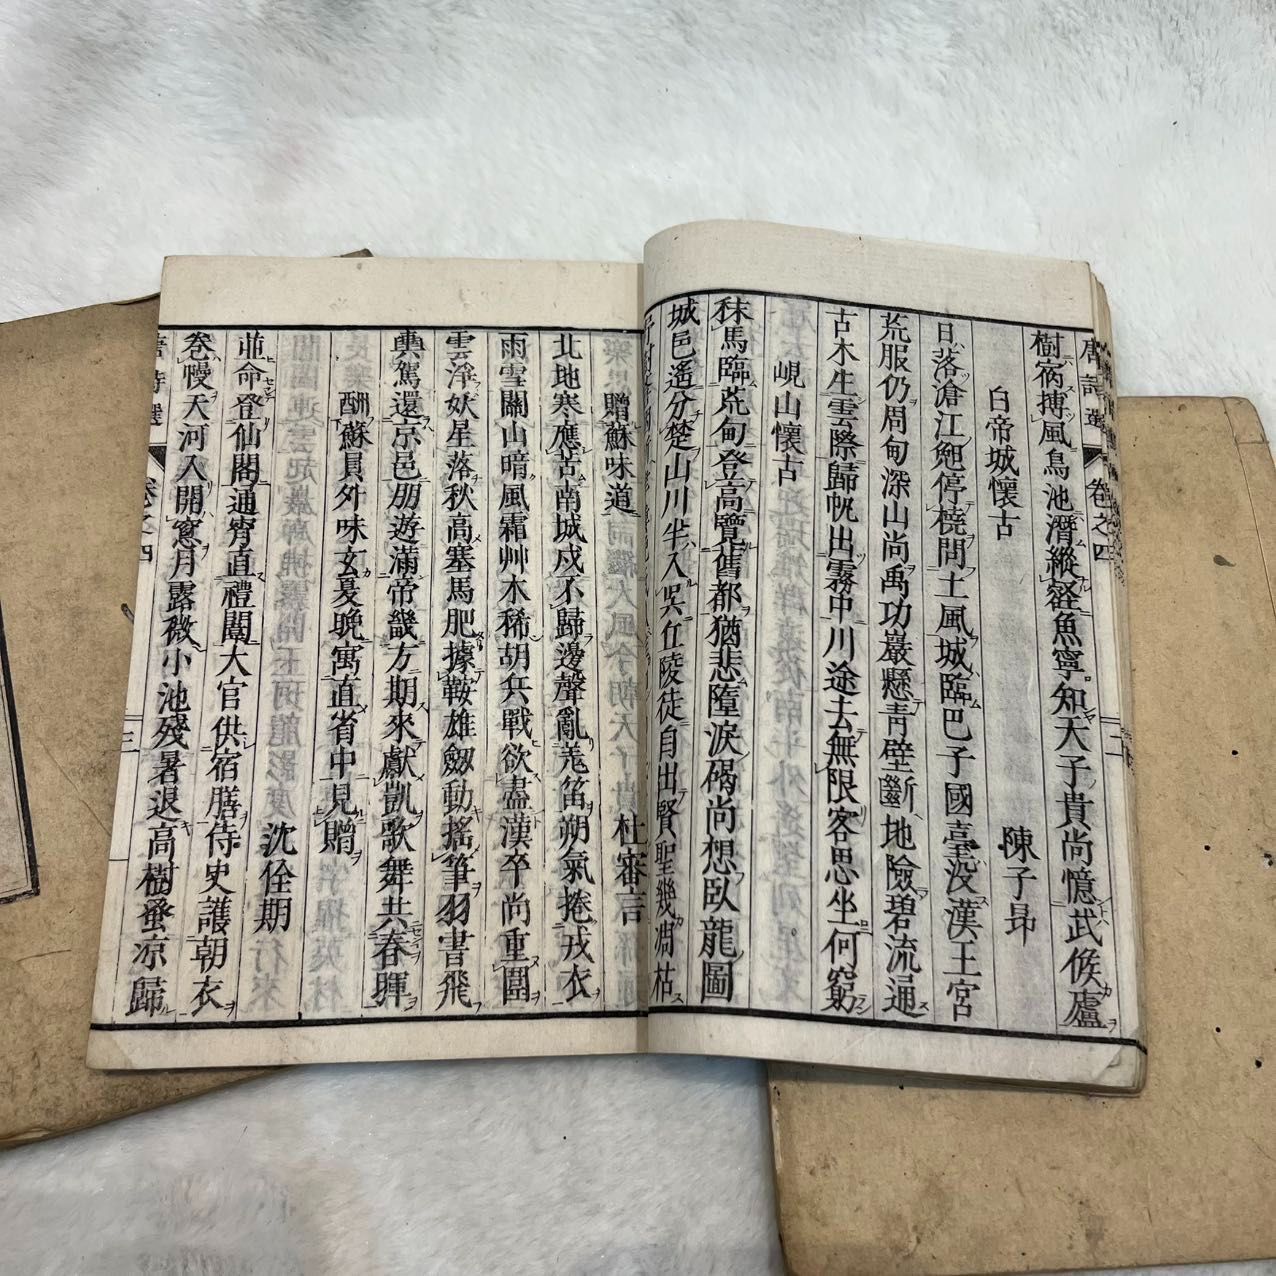 唐詩選 卷之四 二
樹宿搏風鳥池潛縱壑魚寧知天子貴尚憶武侯廬
白帝城懷古 陳子昂
日落滄江晚停橈問土風城臨巴子國臺没漢王宮
荒服仍周甸深山尚禹功巖懸青壁斷地險碧流通
古木生雲際歸帆出霧中川途去無限客思坐何窮
峴山懷古
秣馬臨荒甸登高覽舊都猶悲墮淚碣尚想臥龍圖
城邑遙分楚山川半入吳丘陵徒自出賢聖幾凋枯
贈蘇味道 杜審言
北地寒應苦南城戍不歸邊聲亂羗笛朔氣捲戎衣
雨雪關山暗風霜艸木稀胡兵戰欲盡漢卒尚重圍
雲淨妖星落秋高塞馬肥據鞍雄劔動搖筆羽書飛
輿駕還京邑朋遊滿帝畿方期來獻凱歌舞共春輝
酬蘇員外味玄夏晚寓直省中見贈
沈佺期
並命登仙閣通宵直禮闈大官供宿膳侍史護朝衣
卷幔天河入開窻月露微小池殘暑退高樹蚤凉歸
唐詩選 卷之四 三